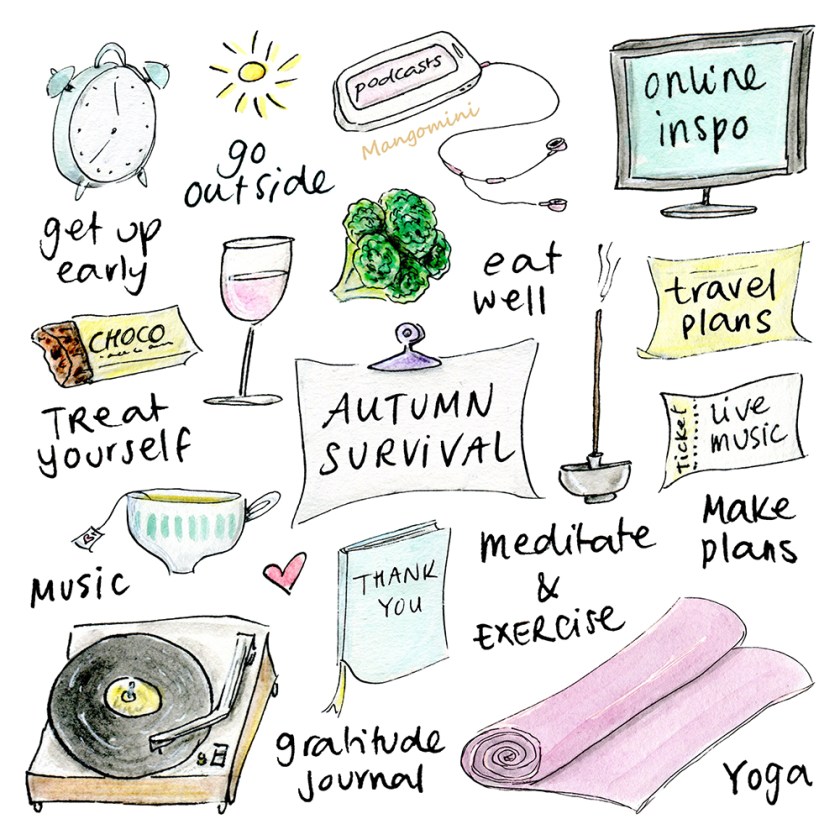 podcasts
Mangomini
online
inspo
go
outside
get up
early
eat
well
travel
plans
CHOCO
TReat
yourself
AUTUMN
SURViVAL
Ticket
Live
music
Make
plans
meditate
&
EXERcise
MUSiC
THANK
YOU
gratitude
Journal
Yoga